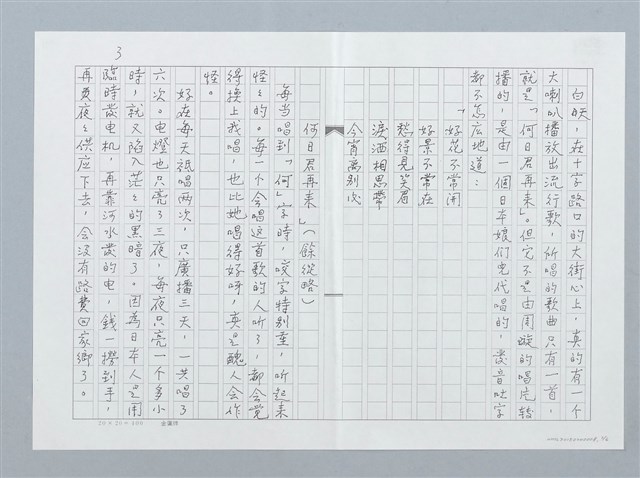 3
白天，在十字路口的大街心上，真的有一个
大喇叭播放出流行歌，所唱的歌曲只有一首，
就是「何日君再来」。但它不是由周璇的唱片转
播的，是由一個日本娘们児代唱的，發音吐字
都不怎広地道：
「好花不常開
好景不常在
愁得見笑眉
淚洒相思帶
今宵离別后
何日君再来」（餘從略）
每当唱到「何」字時，咬字特别重，听起来
怪々的。每一个会唱这首歌的人听了，都会覚
得換上我唱，也比她唱得好呀，真是醜人会作
怪。
好在每天祇唱两次，只廣播三天，一共唱了
六次。电燈也只亮了三夜，每夜只亮一个多小
時，就又陷入茫々的黑暗了。因為日本人是用
臨時發电机，再靠河水發的电，錢一撈到手，
再要夜々供应下去，会没有路費回家鄉了。
20×20=400